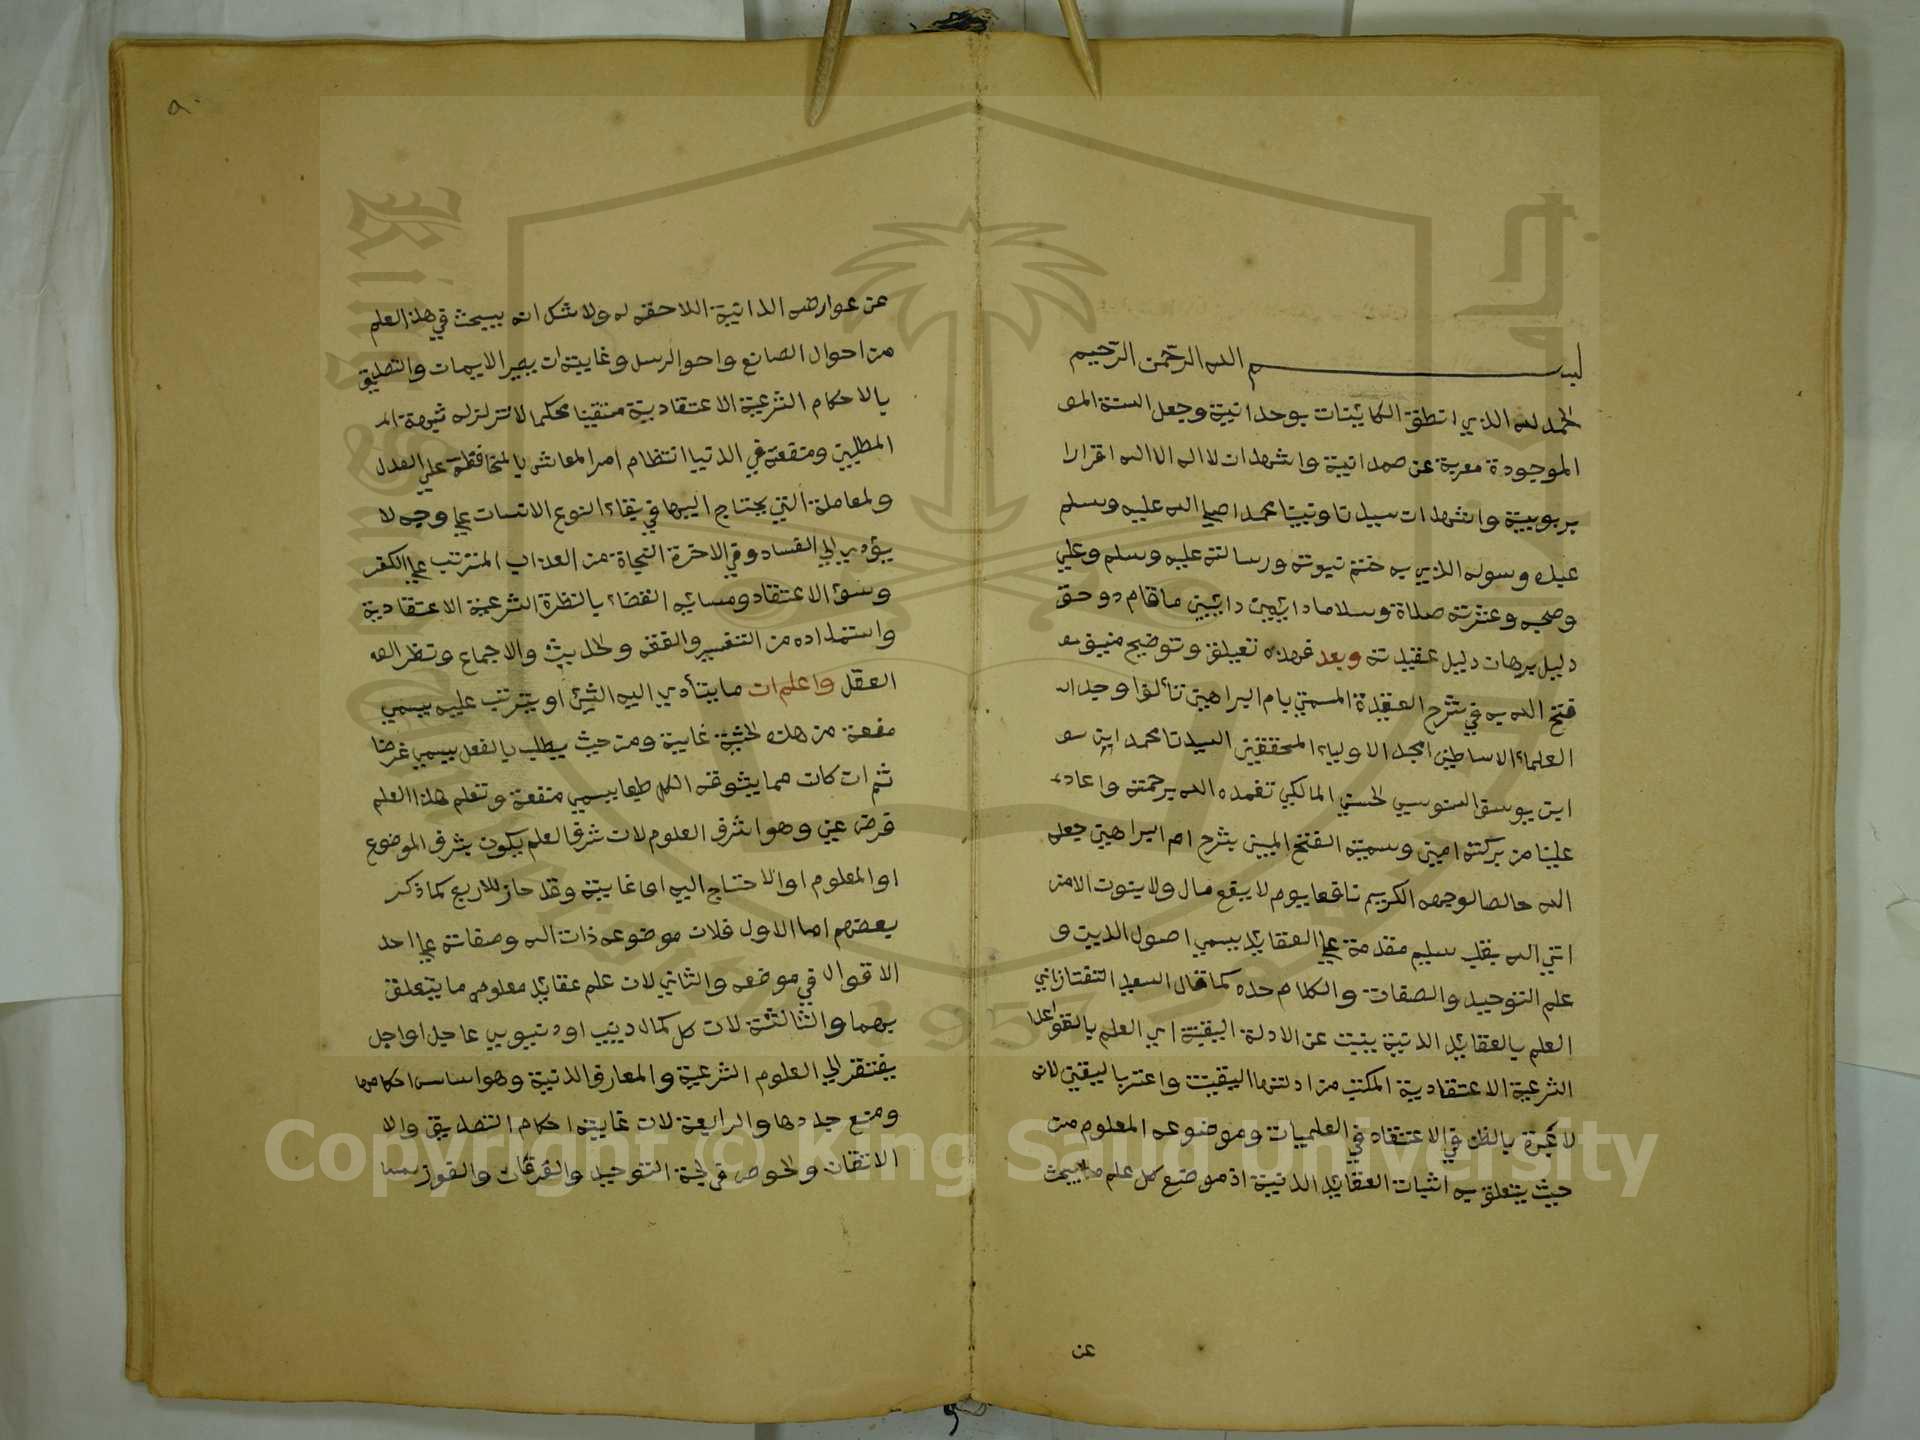 بسم الله الرحمن الرحيم
الحمد لله الذي انطق الكاينات بوحدانية وجعل السنة المو
الموجودة معربة عن صمدانية واشهد ان لا اله الا الله اقرارا
بربوبية واشهد ان سيدنا ونبينا محمدا صلي الله عليه وسلم
عبده وسوله الذي به ختم نبوته ورسالته عليه وسلم وعلي
وصحبه وعترته صلاة وسلاما دايمين دايبين ماقام دوحق
دليل برهان دليل عقيدته وبعد فهذه تعيلق وتوضيح منيق
فتح الله به في شرح العقيدة المسمي بام البراهين تألفا وحيد
العلماء الاساطين امجد الاولياء المحققين السيدنا محمد ابن
ابن يوسف السنوسي الحسني المالكي تغمده الله برحمته واعاد
علينا من بركته امين وسميته الفتح المبين بشرح ام البراهين جعله
الله خالصا لوجهه الكريم نافعا يوم لا ينفع مال ولا بنون الامن
اتي الله بقلب سليم مقدمة علم العقايد يسمي اصول الدين و
علم التوحيد والصفات والكلام حده كما قال السعد التفتازاني
العلم بالعقايد الدنية عن الادلة اليقنية اي العلم بالقواعد
الشرعية الاعتقادية المكتب من ادلتها اليقينة واعتر باليقين لانه
لا عبرة بالظن في الاعتقاد في العلميات وموضوعه المعلوم من
حيث يتعلق به اثبات العقايد الدنية اذ موضع كل علم ما يبحث
عن
عن عوارضه الذاتية اللاحقه له ولا شك انه يبحث في هذا العلم
من احوال الصانع واحوالرسل وغايته ان يصير الايمان والتصديق
بالاحكام الشرعية الاعتقادية متقينا محكما لا تزلزله شبهة الم
المطلبين ومنفعة في الدنيا انتظام امر المعاش بالمحافظة علي العدل
ولمعاملة التي يحتاج اليها في بقاء النوع الانسان علي وجه لا
يؤدي الي الفساد وفي الاخرة النجاة من العذاب المترتب علي الكفر
وسوء الاعتقاد ومسائله القضاء بالنظرة الشرعية الاعتقادية
واستمداده من التفسير والفقه ولحديث والاجماع ونظر
العقل واعلم ان ما يتأدي اليه الشئ او يترتب عليه يسمي
مفعة من هذه لحثية غاية ومن حيث يطلب بالفعل يسمي غرضا
ثم ان كان مما يشوقه الكل طبعا يسمي منفعة وتعلم هذا العلم
فرض عين وهو اشرف العلوم لان شرف العلم يكون بشرف الموضوع
او المعلوم او الاحتاج اليه او غايته وقد حاز للاربع كما ذكر
بعضهم اما الاول فلان موضوعه ذات الله وصفاته علي احد
الاقوال في موضعه والثاني لان علم عقايد معلومه ما يتعلق
بهما والثالثة لان كل كمال ديني او دنيوي عاجل او اجل
يفتقر الي العلوم الشرعية والمعارف الدنية وهو اساس احكامها
ومنع جددها والرابعة لان غايته احكام التصديق والا
الاتقان ولخوص في لجة التوحيد والفرقان والفوز
Copyright © King Saud University
1957